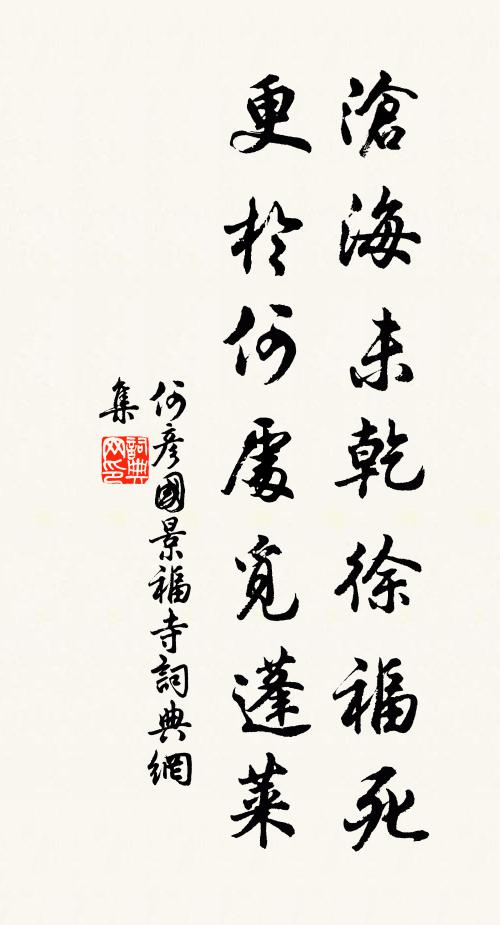 滄海未乾徐福死
更於何處覓蓬萊
何彥國景福寺詞典網
集
詞典
网印